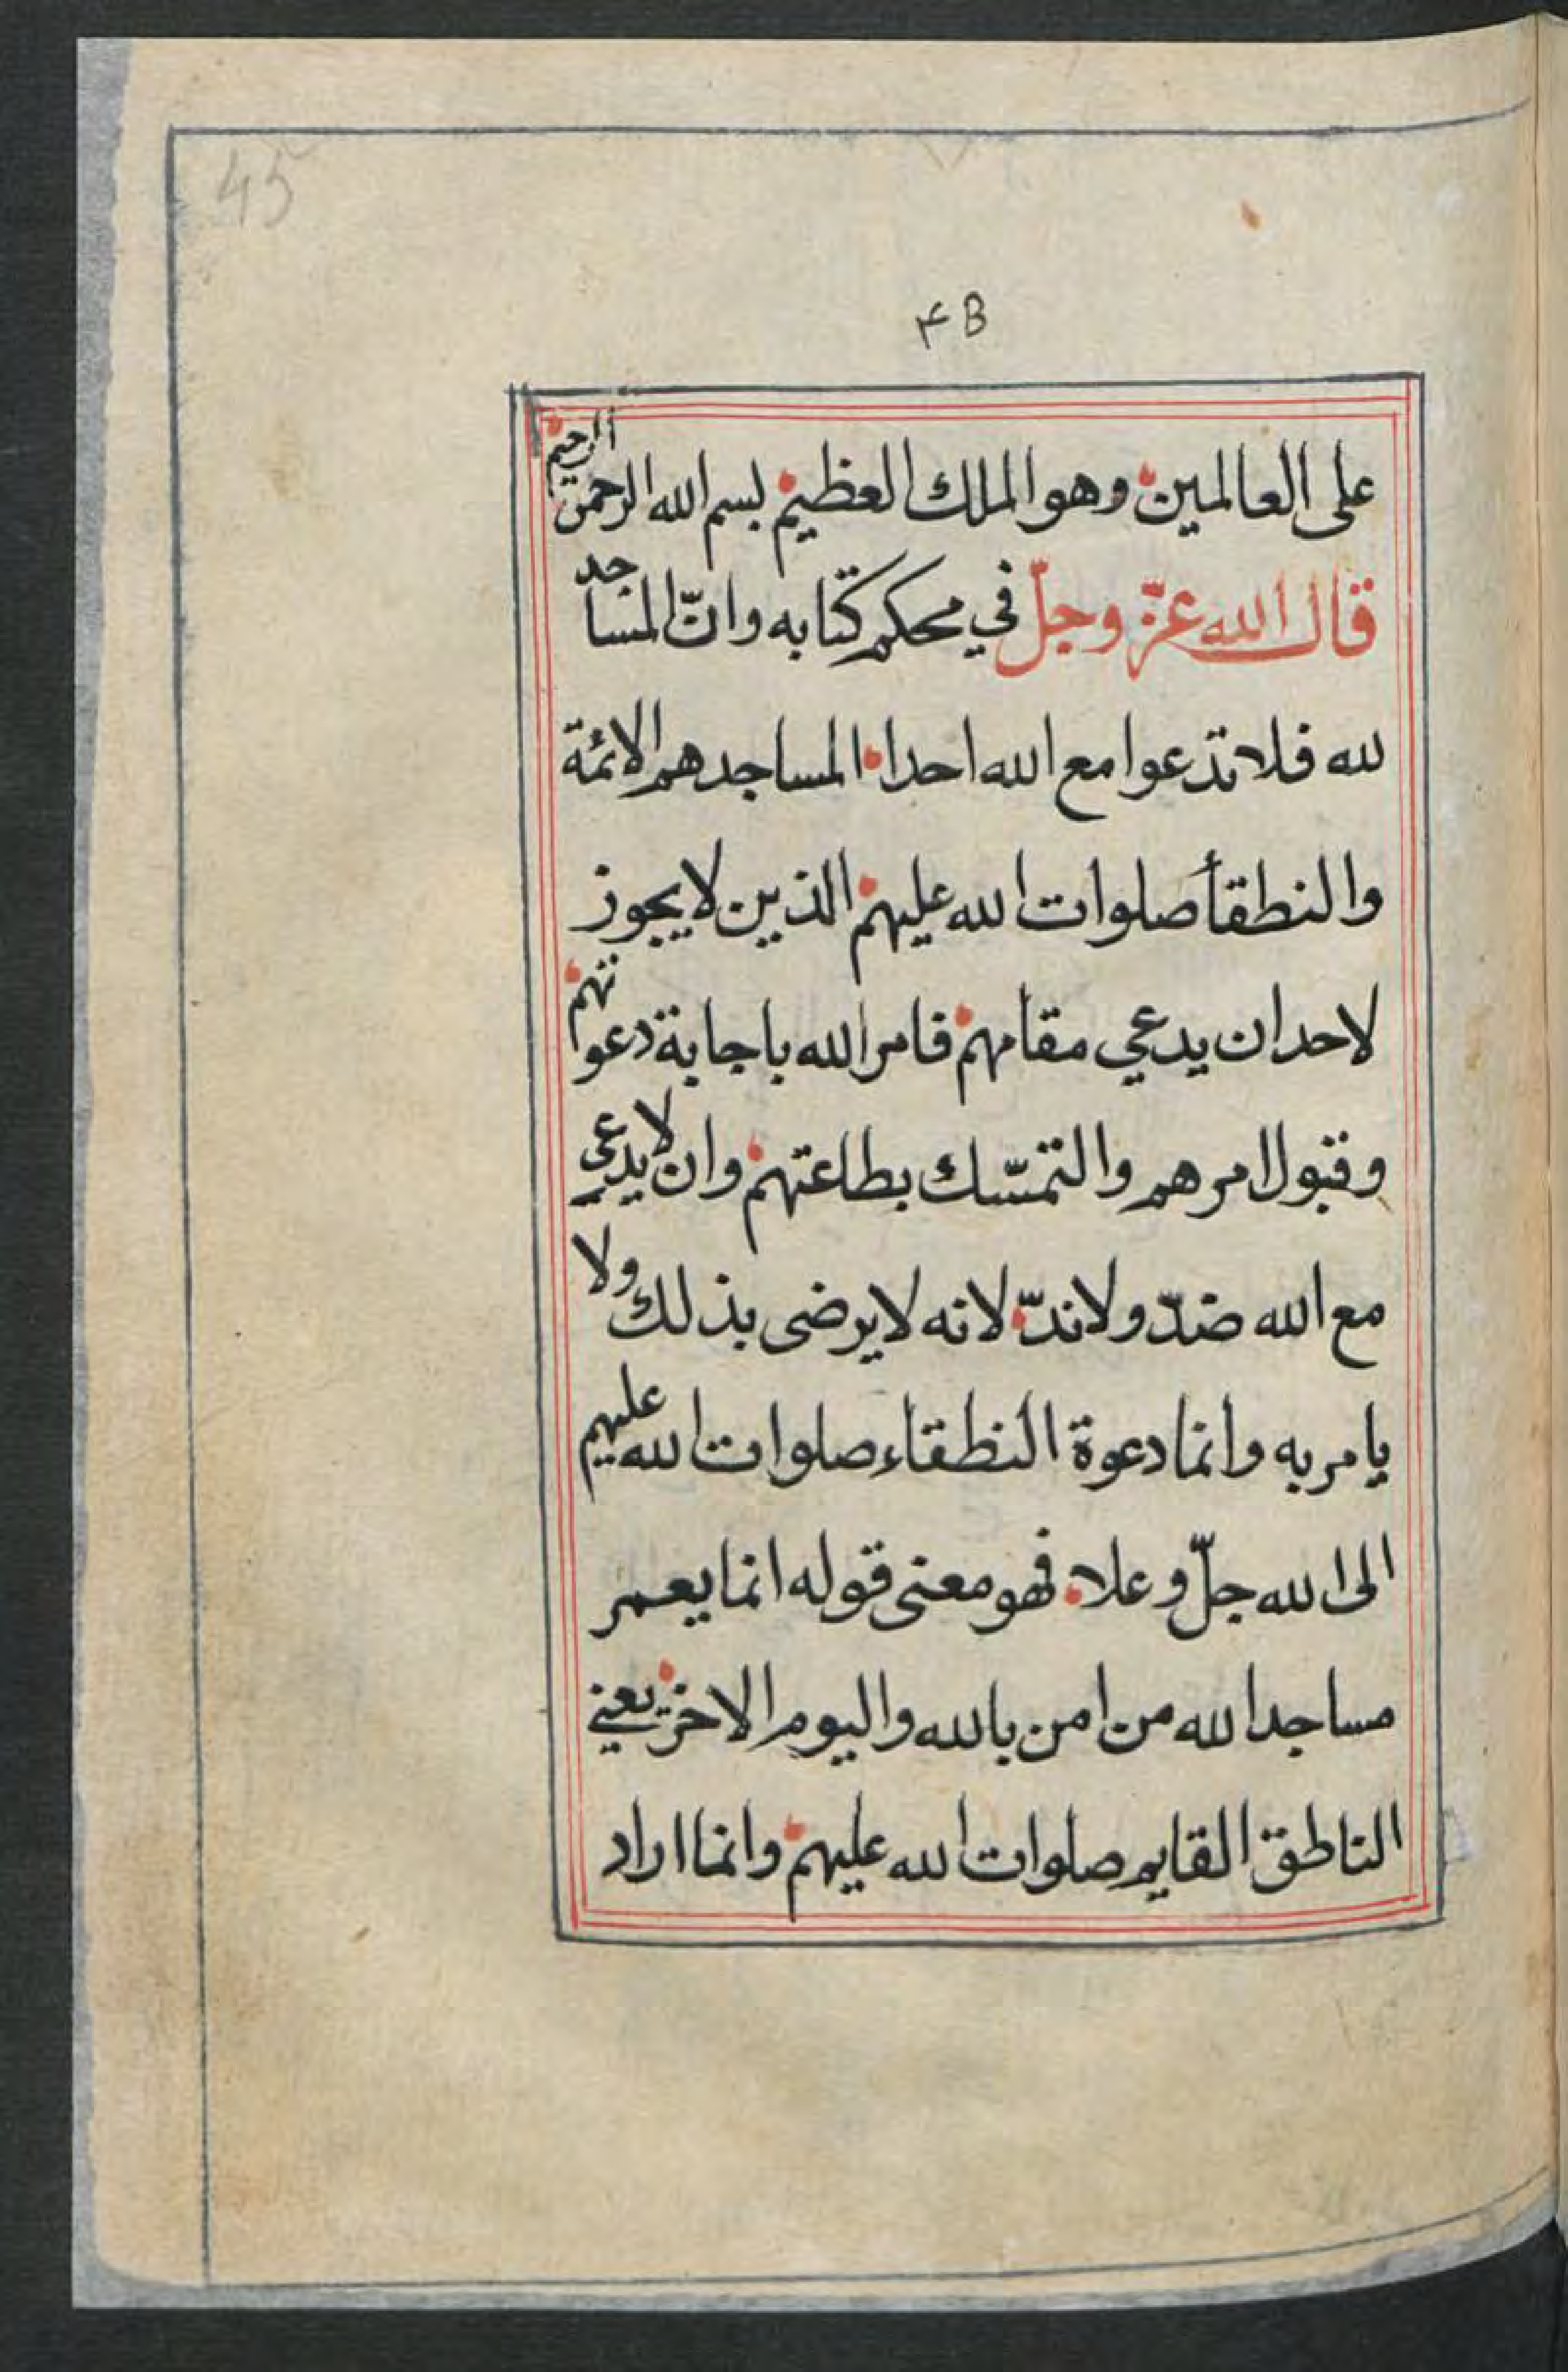 45
۴B
على العالمين وهو الملك العظيم بسم الله الرحمن الرحيم
قال الله عزّ وجلّ في محكم كتابه وانّ المساجد
لله فلا تدعوا مع الله احدا المساجد هم الائمة
والنطقأ صلوات الله عليهم الذين لا يجوز
لاحد ان يدعي مقامهم فامر الله باجابة دعواتهم
وقبول امرهم والتمسّك بطاعتهم وان لا يدعي
مع الله ضدّ ولا ندّ لانه لا يرضى بذلك ولا
يامر به وانما دعوة النطقاء صلوات الله عليهم
الى الله جلّ وعلا فهو معنى قوله انما يعمر
مساجد الله من امن بالله واليوم الاخر يعني
الناطق القايم صلوات الله عليهم وانما اراد